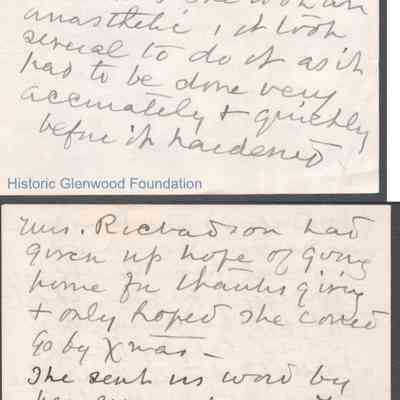 anasthetic, it took
several to do it as it
had to be done very
accurately & quickly
before it hardened
Historic Glenwood Foundation
Mrs. Richardson had
given up hope of going
home for thanks giving
& only hoped she could
go by Xmas —
She sent us word by